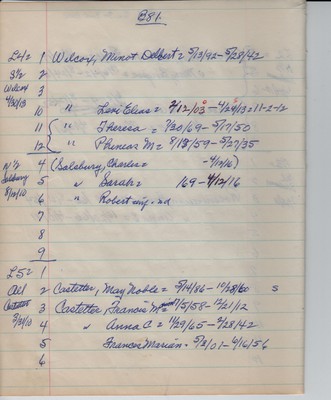 E81.
L4½ 1 Wilcox, Minot Delbert = 5/13/92 - 5/28/42
3½ 2
Wilcox 3
4/30/13 10 " Levi Elias = 2/12/03 - 4/24/13 = 11-2-12
11 " Theresa = 7/20/69 - 5/17/50
12 " Phineas M = 8/18/59 - 5/27/35
N½ 4 (Salsbury, Charles = - 4/14/16)
Salsbury 5 " Sarah = 169 - 4/12/16
8/10/10 6 " Robert
7
8
9
L5½ 1
All 2 Castetter, May Noble = 5/14/86 - 10/28/60 S
Castetter 3 Castetter Francis M = 11/5/58 - 12/21/12
3/31/10 4 " Anna C = 11/29/65 - 2/28/42
5 Francis Marion = 5/2/01 - 4/16/56
6